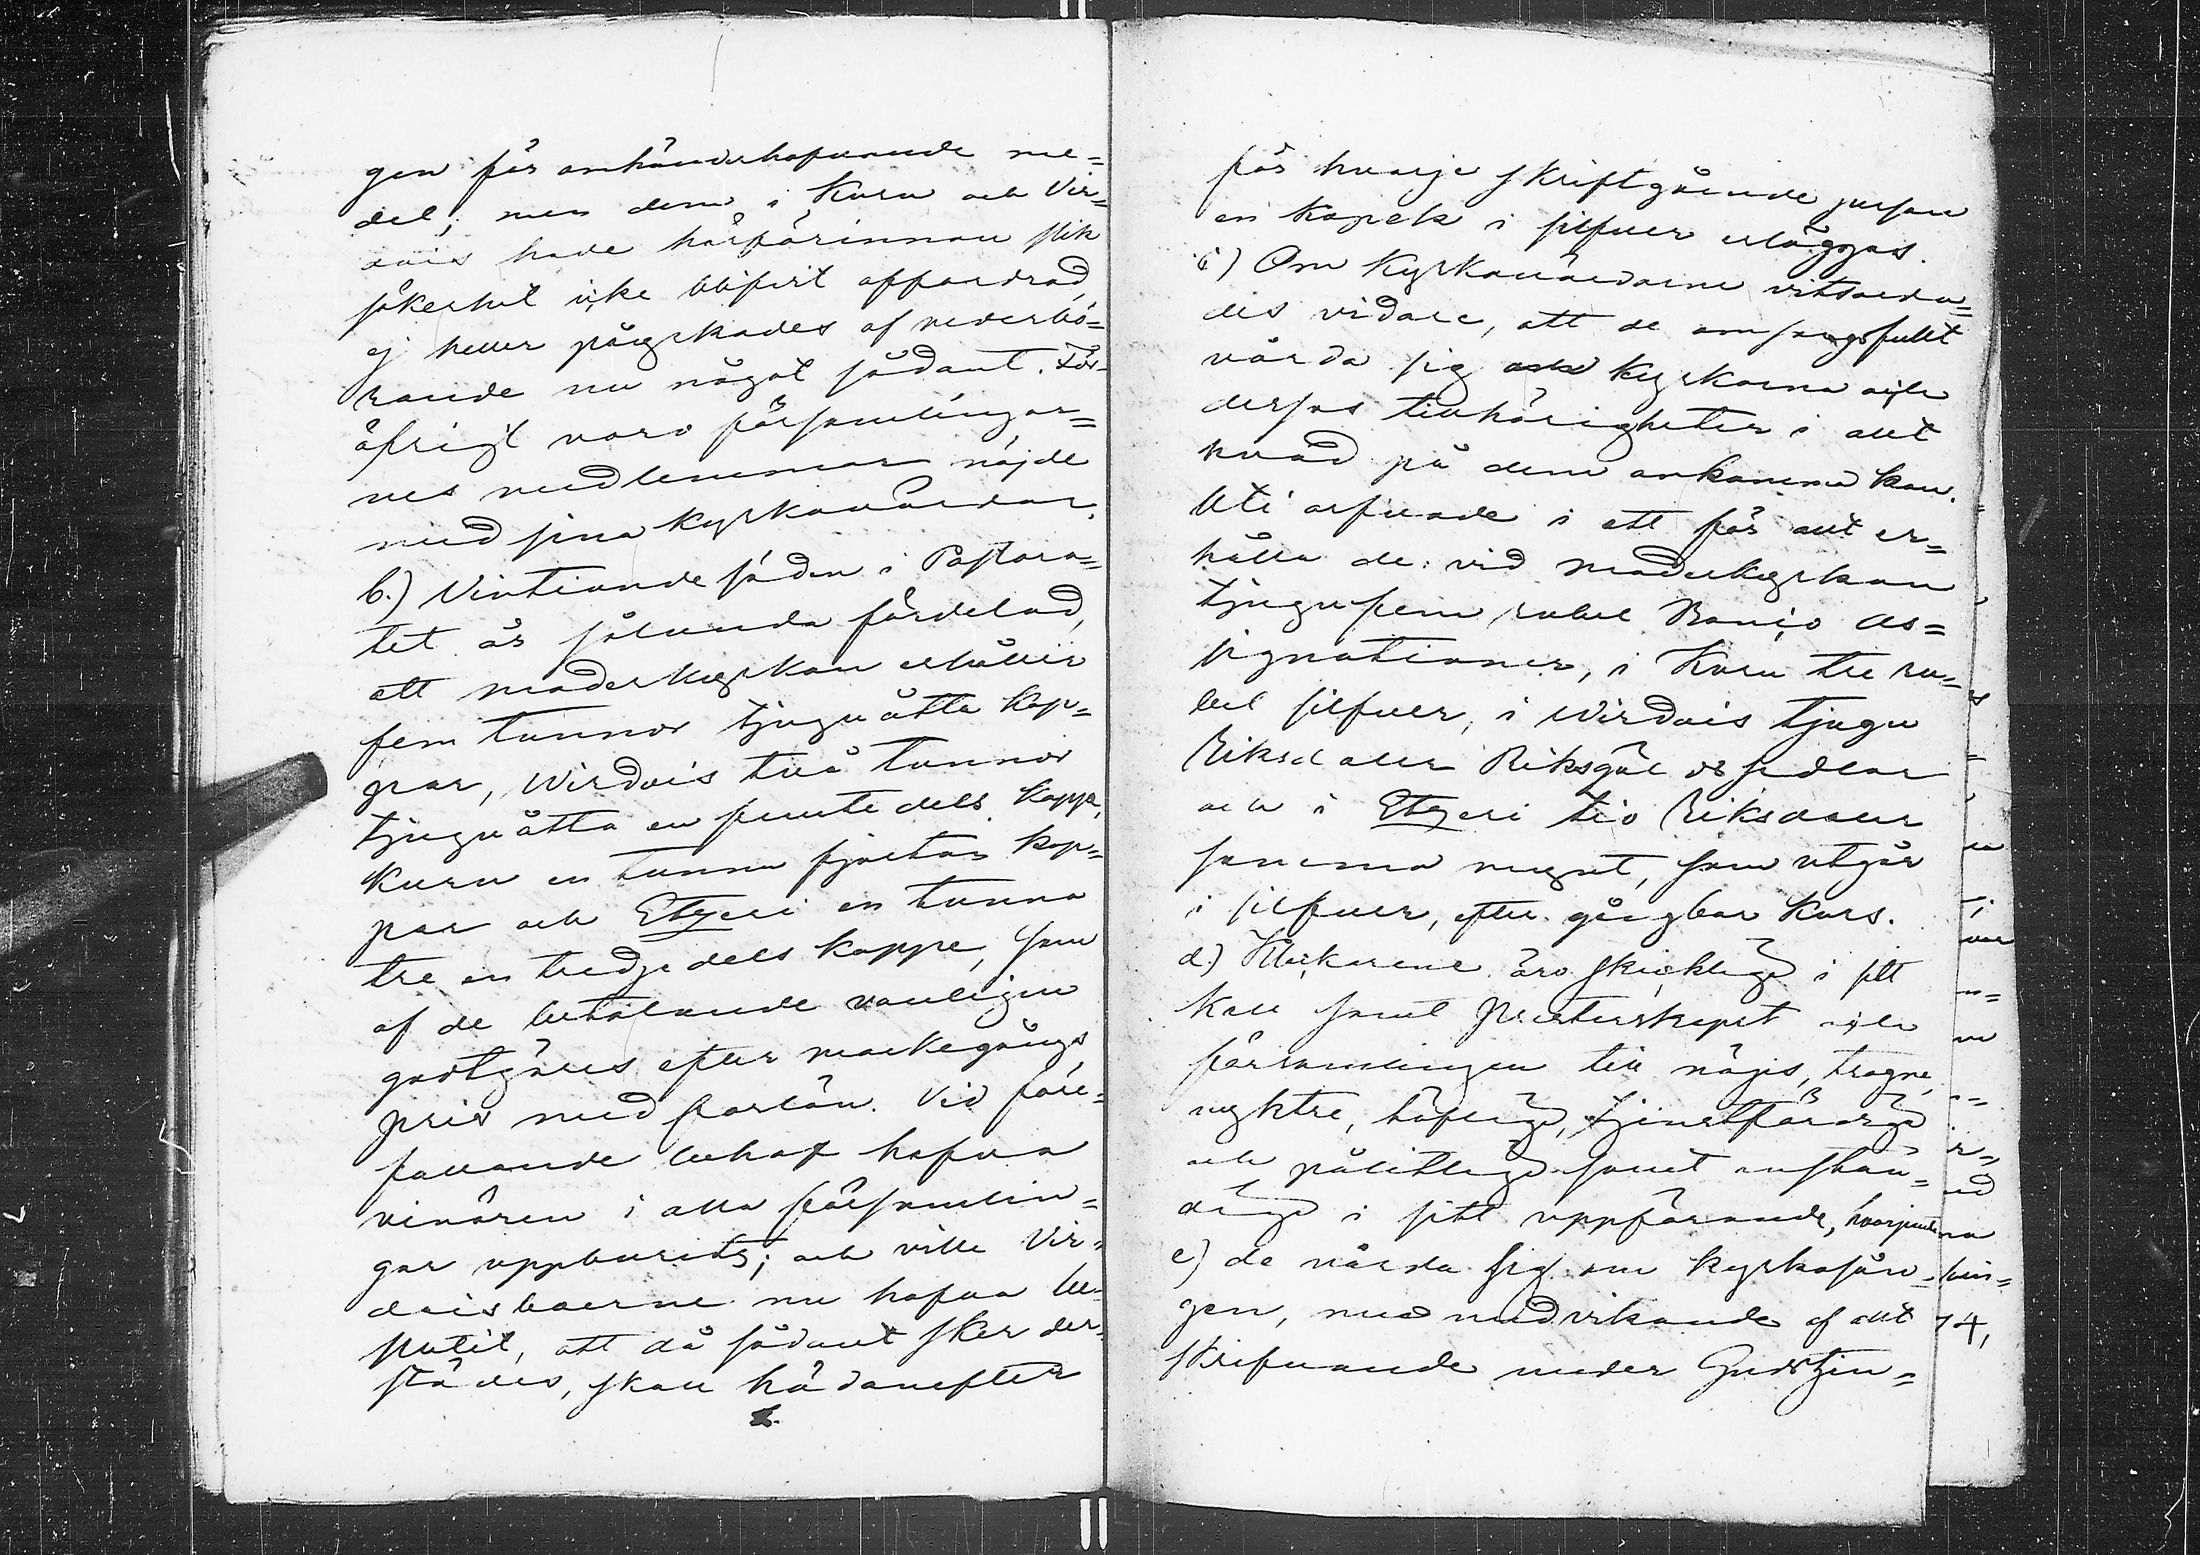 gen för omhänderhafvande me=
del; men dem i Kuru och Vir=
dois hade härförinnan slik
säkerhet icke blifvit affordrad,
ej heller påyrkades af vederbö=
rande nu något sådant. För
öfrigt voro församlingar=
nes medlemmar nöjde
med sina Kyrkovärdar.
b.) Vintionde säden i Pastora=
tet är sålunda fördelad,
att moderkyrkan erhåller
fem tunnor tjuguåtta kap=
par, Wirdois två tunnor
tjuguåtta en femtedels kappe,
Kuru en tunna fjorton kap=
par och Etzeri en tunna
tre en tredjedels kappe, som
af de betalande vanligen
godtgöres efter markegångs
pris med forlön. Vid före=
fallande behof hafva
vinören i alla församlin=
gar uppburits; och ville Vir=
doisboerne nu hafva be=
slutit, att då sådant sker der=
städes, skall hädanefter
för hvarje skriftgående person
en kopek i silfver erläggas.
c) Om Kyrkovärdarne vitsorda=
des vidare, att de omsorgsfullt
vårda sig om Kyrkorna och
dessas tillhörigheter i allt
hvad på dem ankomma kan.
Uti arfvode i ett för allt er=
hålla de: vid moderkyrkan
tjugufem rubel Banco As=
signationer, i Kuru tre ru=
bel silfver, i Wirdois tjugu
Riksdaler Riksgäldssedlar
och i Etzeri tio Riksdaler
samma mynt, som utgår
i silfver, efter gångbar kurs.
d.) Klockarene äro skicklige i sitt
kall samt Presterskapet och
församlingen till nöjes, trogne,
nyktre, höflige, tjenstfärdige
och pålitlige samt anstän=
dige i sitt uppförande, hvarjemte
e) de vårda sig om kyrkosån=
gen, med medvirkande af allt
skrifvande under Gudstjen=